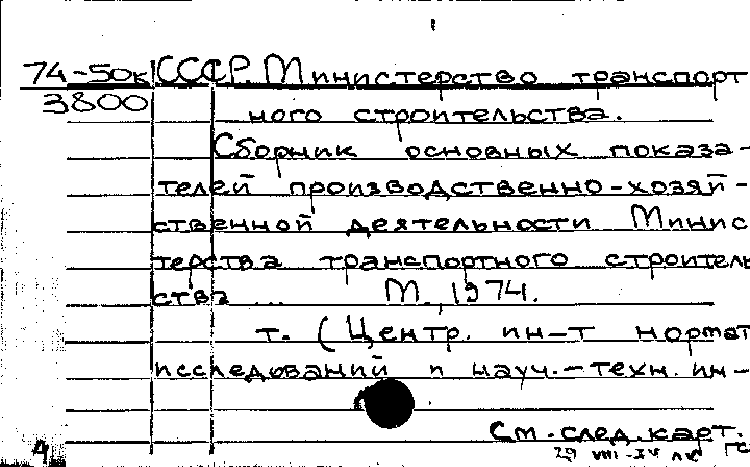 74-50к СССР. Министерство транспорт
3800 ного строительства.
Сборник основных показа-
телей производственно-хозяй-
ственной деятельности Минис
терства транспортного строитель
ства ... М., 1974.
т. (Центр. ин-т нормат
исследований и науч.-техн. ин-
См. след. карт.
4